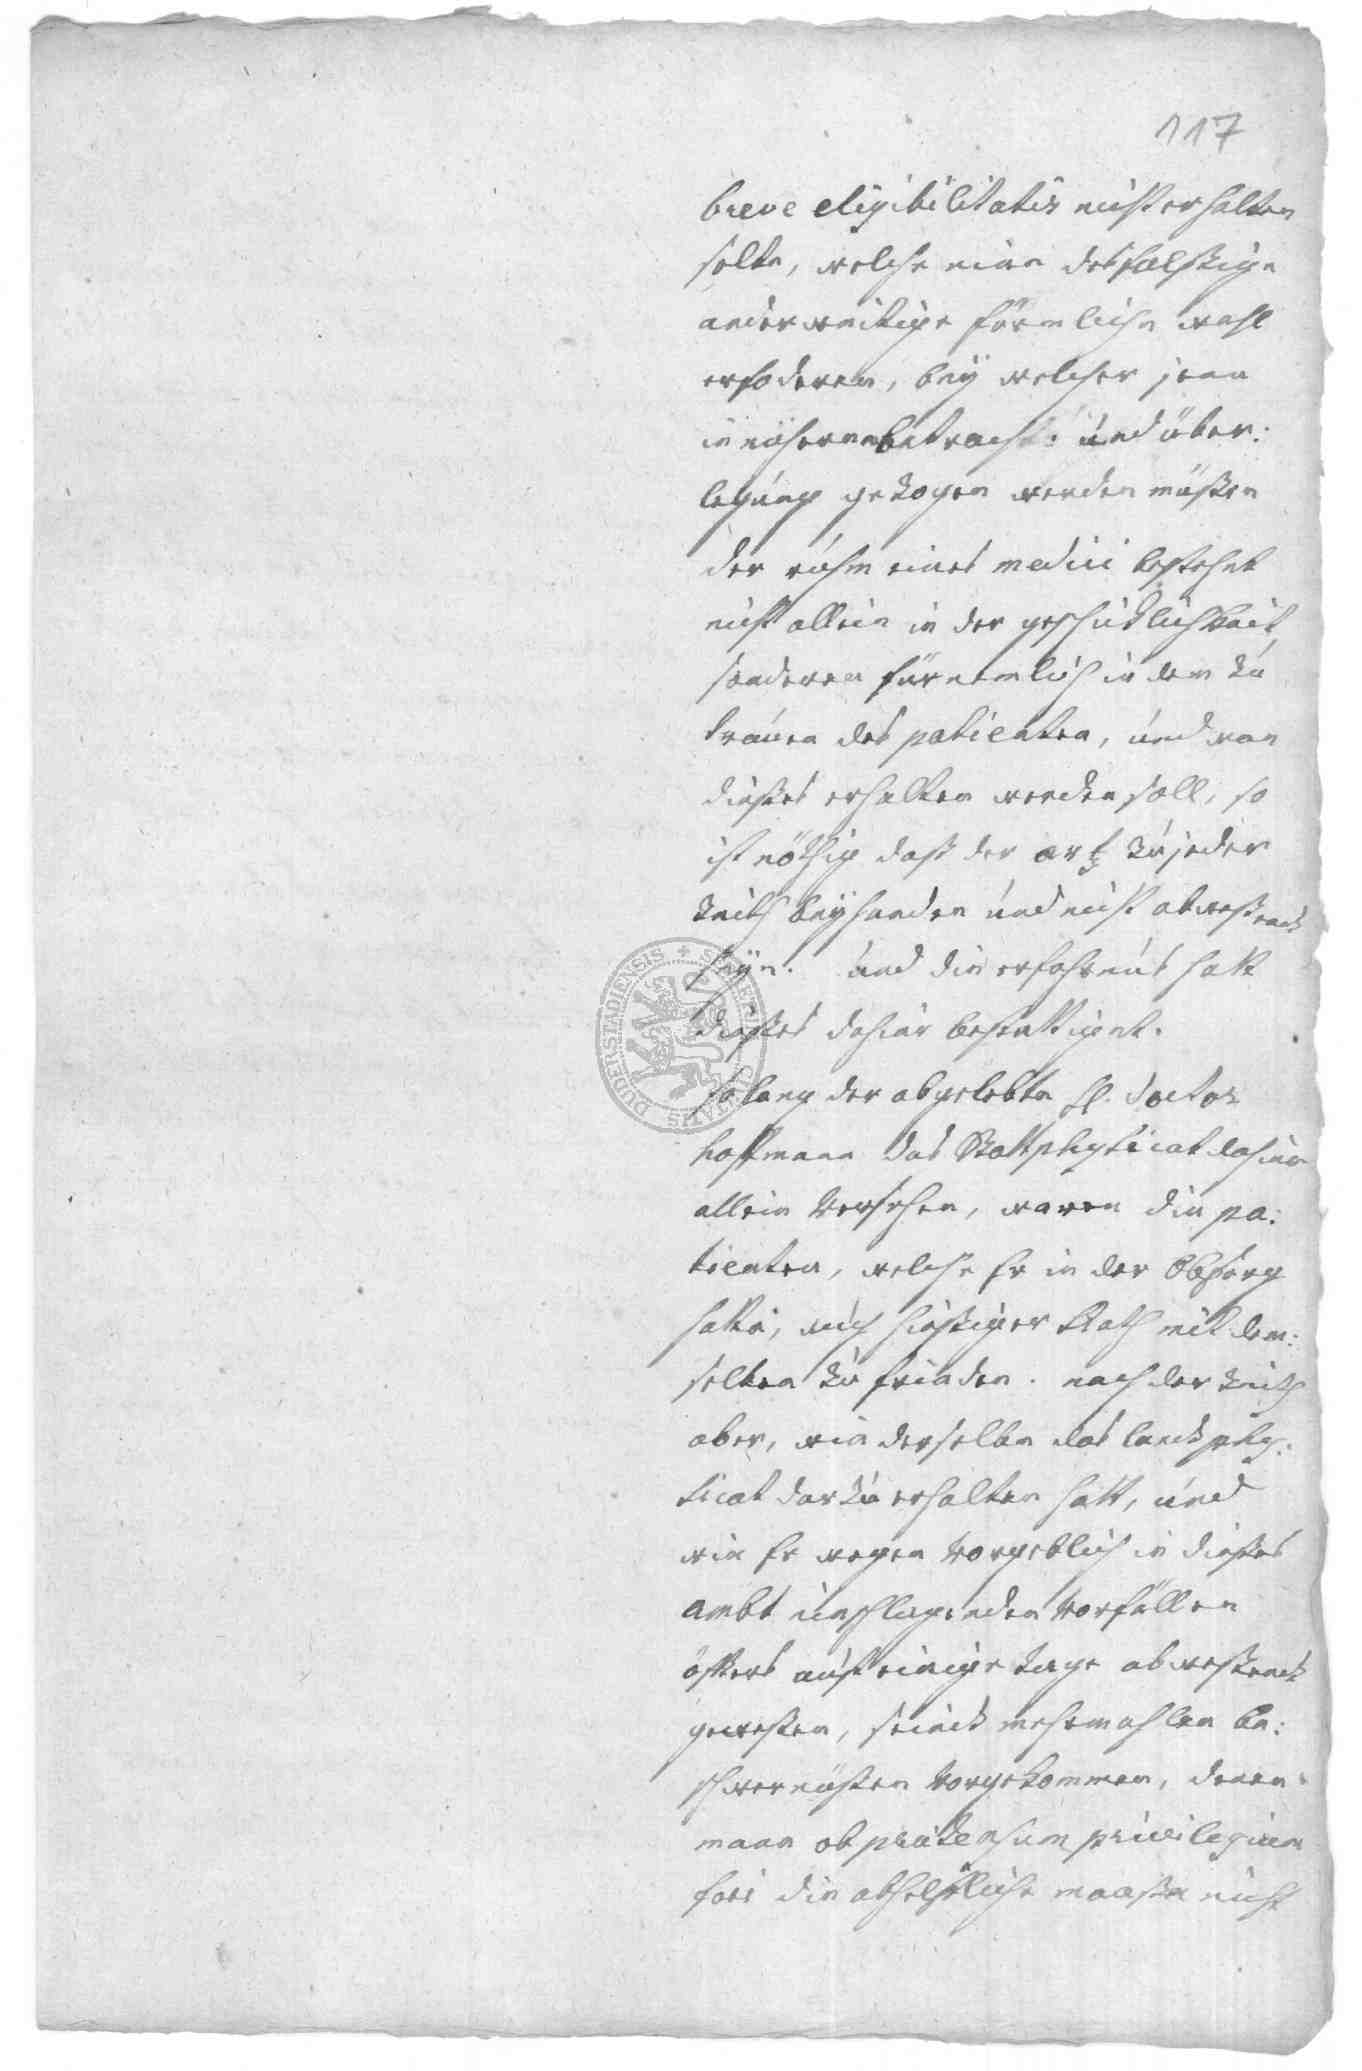 117
breve eligibilitatis nicht erhalten
solte, welche eine desfalßige
anderweitige förmliche wahl
erfoderen, bey welcher jene
in näheren betracht: und über:
legung gezogen werden müßen
der ruhm eines medici bestehet
nicht allein in der geschicklichkeit
sonderen fürnemlich in dem zu
trauen des patienten, und wan
dießes erhalten werden soll, so
ist nöthig daß der artz zu jeder
zeith beyhanden und nicht abweßend
seyn. und die erfahrnus hatt
dießes dahier bestättiget.
solang der abgelebte H. Doctor
Hoffmann das Stattphysicat dahier
allein versehen, waren die pa:
tienten, welche Er in der Obsorg
hatte, auch hießiger Rath mit dem:
selben zu frieden. nach der zeith
aber, wie derselbe das landphy:
sicat darzu erhalten hatt, und
wie Er wegen vorgeblich in dießes
ambt einschlagenden vorfällen
öffters auf einige tage abweßend
geweßen, seind mehrmahlen be:
schwernüßen vorgekommen, denen
mann ob praetensum privilegium
fori die abhelfliche maaße nicht
SIGILLUM CIVITATIS DUDERSTADIENSIS